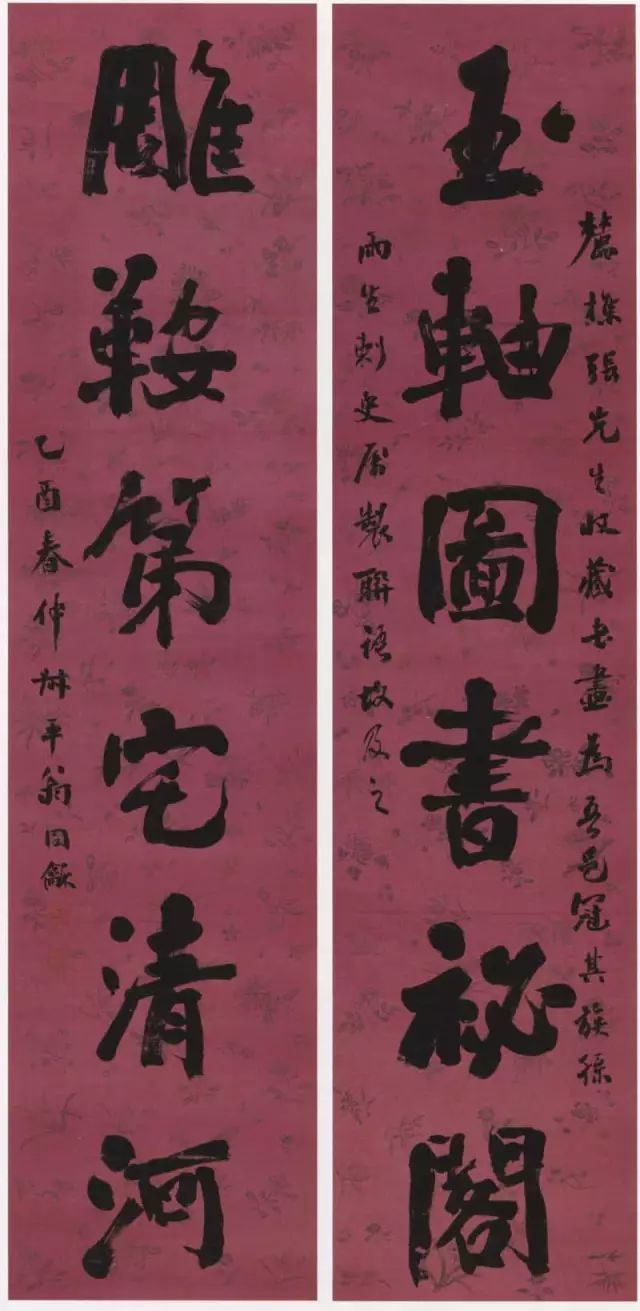 麓樵張先生收藏書畫為吾邑冠其族孫
玉軸圖書祕閣
雨生刺史屬製聯語故及之
雕鞍第宅清河
乙酉春仲叔平翁同龢